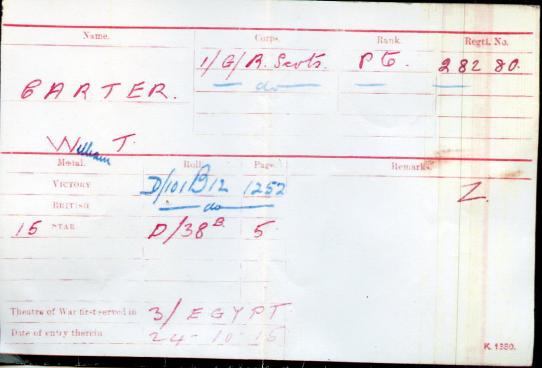 Name. Corps. Rank. Regtl. No.
1/G/R. Scots. Pte. 28280.
do
CARTER.
William T.
Medal. Roll. Page. Remarks.
VICTORY D/101B12 1252 Z.
BRITISH do
15 STAR D/38B 5.
Theatre of War first served in 3/EGYPT
Date of entry therein 24-10-15
K. 1380.